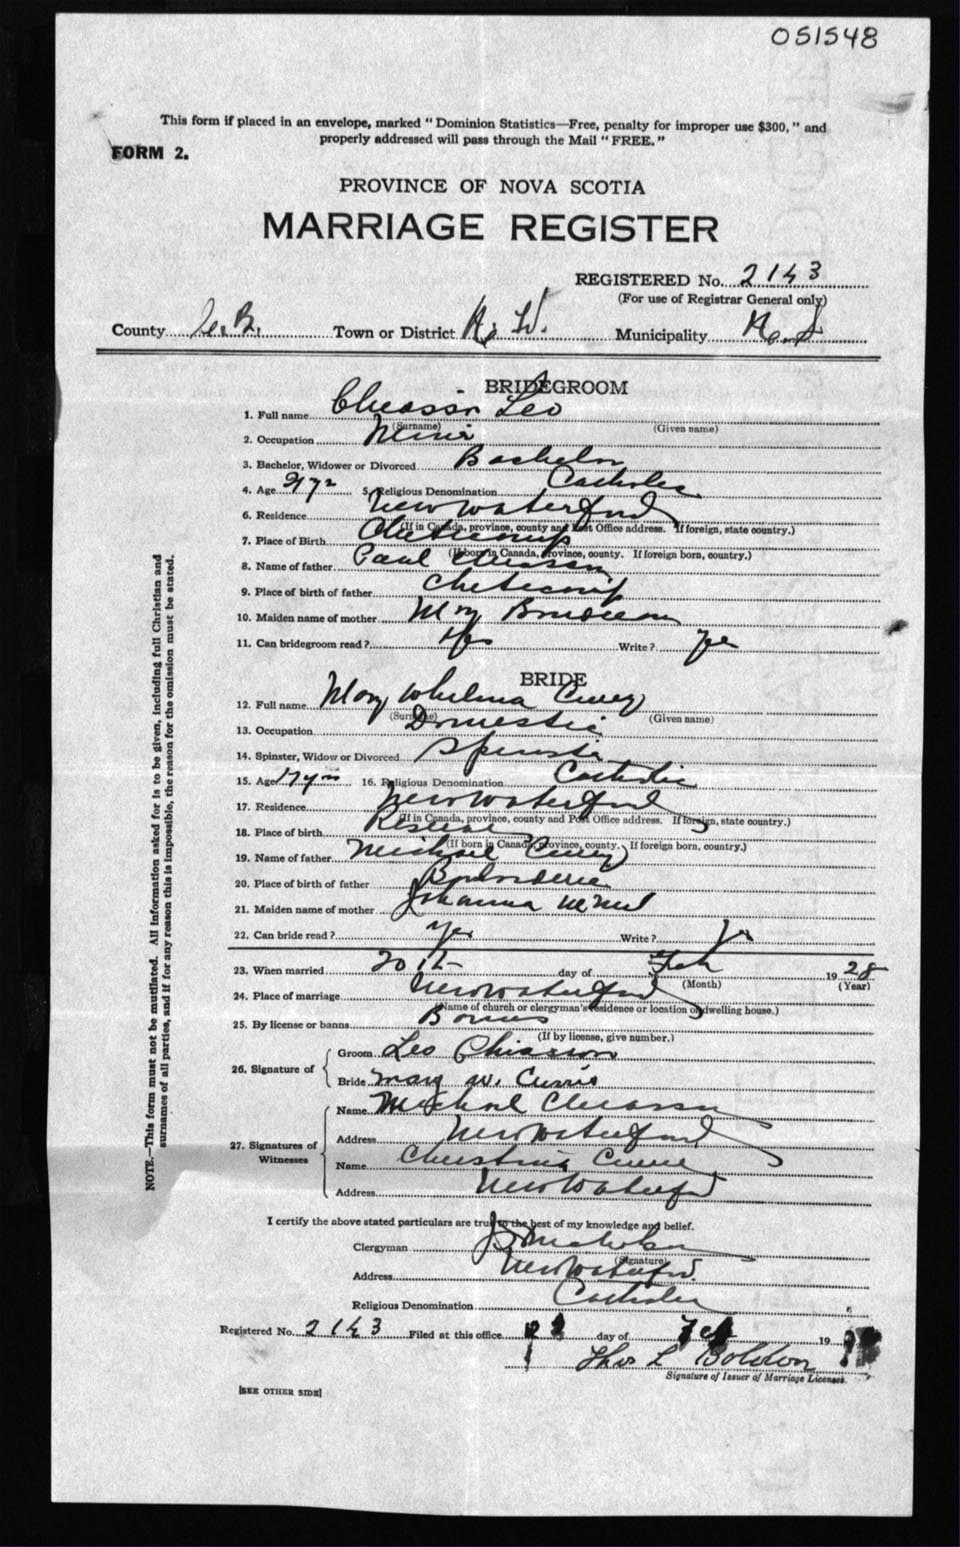 051548
This form if placed in an envelope, marked "Dominion Statistics—Free, penalty for improper use $300," and
properly addressed will pass through the Mail "FREE."
FORM 2.
PROVINCE OF NOVA SCOTIA
MARRIAGE REGISTER
REGISTERED No. 2143
(For use of Registrar General only)
County C.B. Town or District N. W. Municipality
BRIDEGROOM
1. Full name Chiasson Leo
(Surname) (Given name)
2. Occupation Miner
3. Bachelor, Widower or Divorced Bachelor
4. Age 5. Religious Denomination Catholic
6. Residence New Waterford
(If in Canada, province, county and Post Office address. If foreign, state country.)
7. Place of Birth Cheticamp
(If born in Canada, province, county. If foreign born, country.)
8. Name of father Paul Chiasson
9. Place of birth of father Cheticamp
10. Maiden name of mother Mary Boudreau
11. Can bridegroom read? Yes Write? Yes
BRIDE
12. Full name Mary Whelmina
(Surname) (Given name)
13. Occupation Domestic
14. Spinster, Widow or Divorced Spinster
15. Age 17 yrs 16. Religious Denomination Catholic
17. Residence New Waterford
(If in Canada, province, county and Post Office address. If foreign, state country.)
18. Place of birth Reserve
(If born in Canada, province, county. If foreign born, country.)
19. Name of father Michael
20. Place of birth of father
21. Maiden name of mother Johanna McNeil
22. Can bride read? Yes Write? Yes
23. When married 20th day of Feb 1928
(Month) (Year)
24. Place of marriage New Waterford
(Name of church or clergyman's residence or location of dwelling house.)
25. By license or banns Banns
(If by license, give number.)
26. Signature of Groom Leo Chiasson
Bride Mary W. Currie
27. Signatures of Witnesses Name Michael Chiasson
Address New Waterford
Name Christina Currie
Address New Waterford
I certify the above stated particulars are true to the best of my knowledge and belief.
Clergyman
(Signature)
Address New Waterford
Religious Denomination Catholic
Registered No. 2143 Filed at this office day of Feb 19
Thos L Boldon
Signature of Issuer of Marriage Licenses.
[SEE OTHER SIDE]
NOTE.—This form must not be mutilated. All information asked for is to be given, including full Christian and
surnames of all parties, and if for any reason this is impossible, the reason for the omission must be stated.